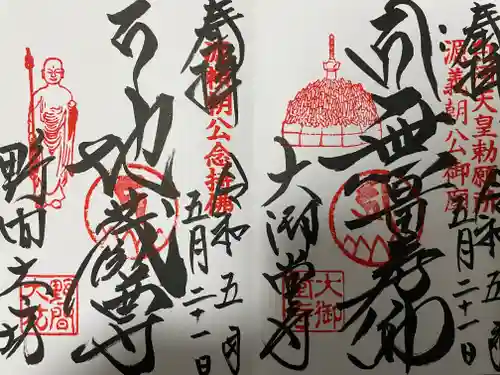 奉拝
令和五年
五月二十一日
白河天皇勅願
源義朝公御廟
無量寿仏
大御堂寺
大御堂寺
奉拝
令和五年
五月二十一日
源頼朝公念持佛
地蔵尊
野間大坊
野間大坊